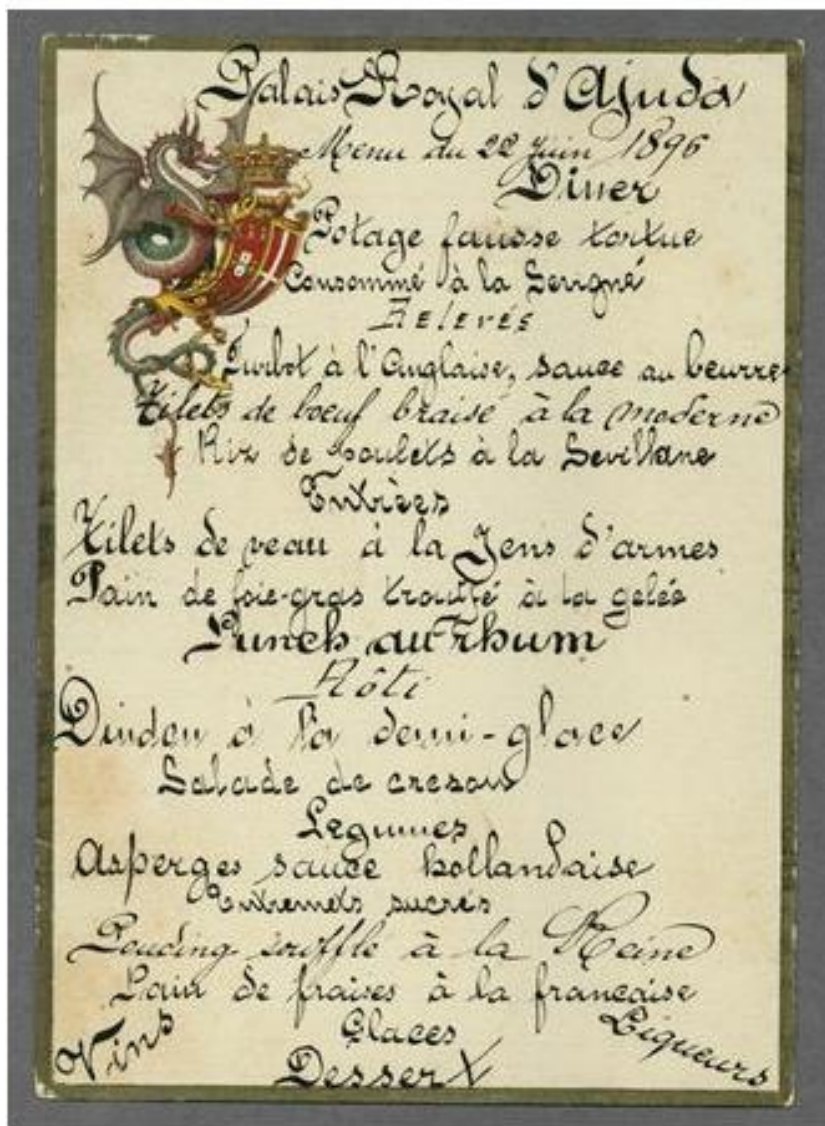 Palais Royal d'Ajuda
Menu du 22 Juin 1896
Diner
Potage fausse tortue
Consommé à la Sevigné
Relevés
Turbot à l'Anglaise, sauce au beurre
Filets de boeuf braisé à la moderne
Riz de poulets à la Sevillane
Entrèes
Filets de veau à la Jens d'armes
Pain de foie-gras trouffé à la gelée
Punch au Rhum
Rôti
Dindon à la demi-glace
Salade de creson
Legumes
Asperges sauce hollandaise
Entremets sucrés
Pouding souffle à la Reine
Pain de fraises à la francaise
Glaces
Vins
Liqueurs
Dessert